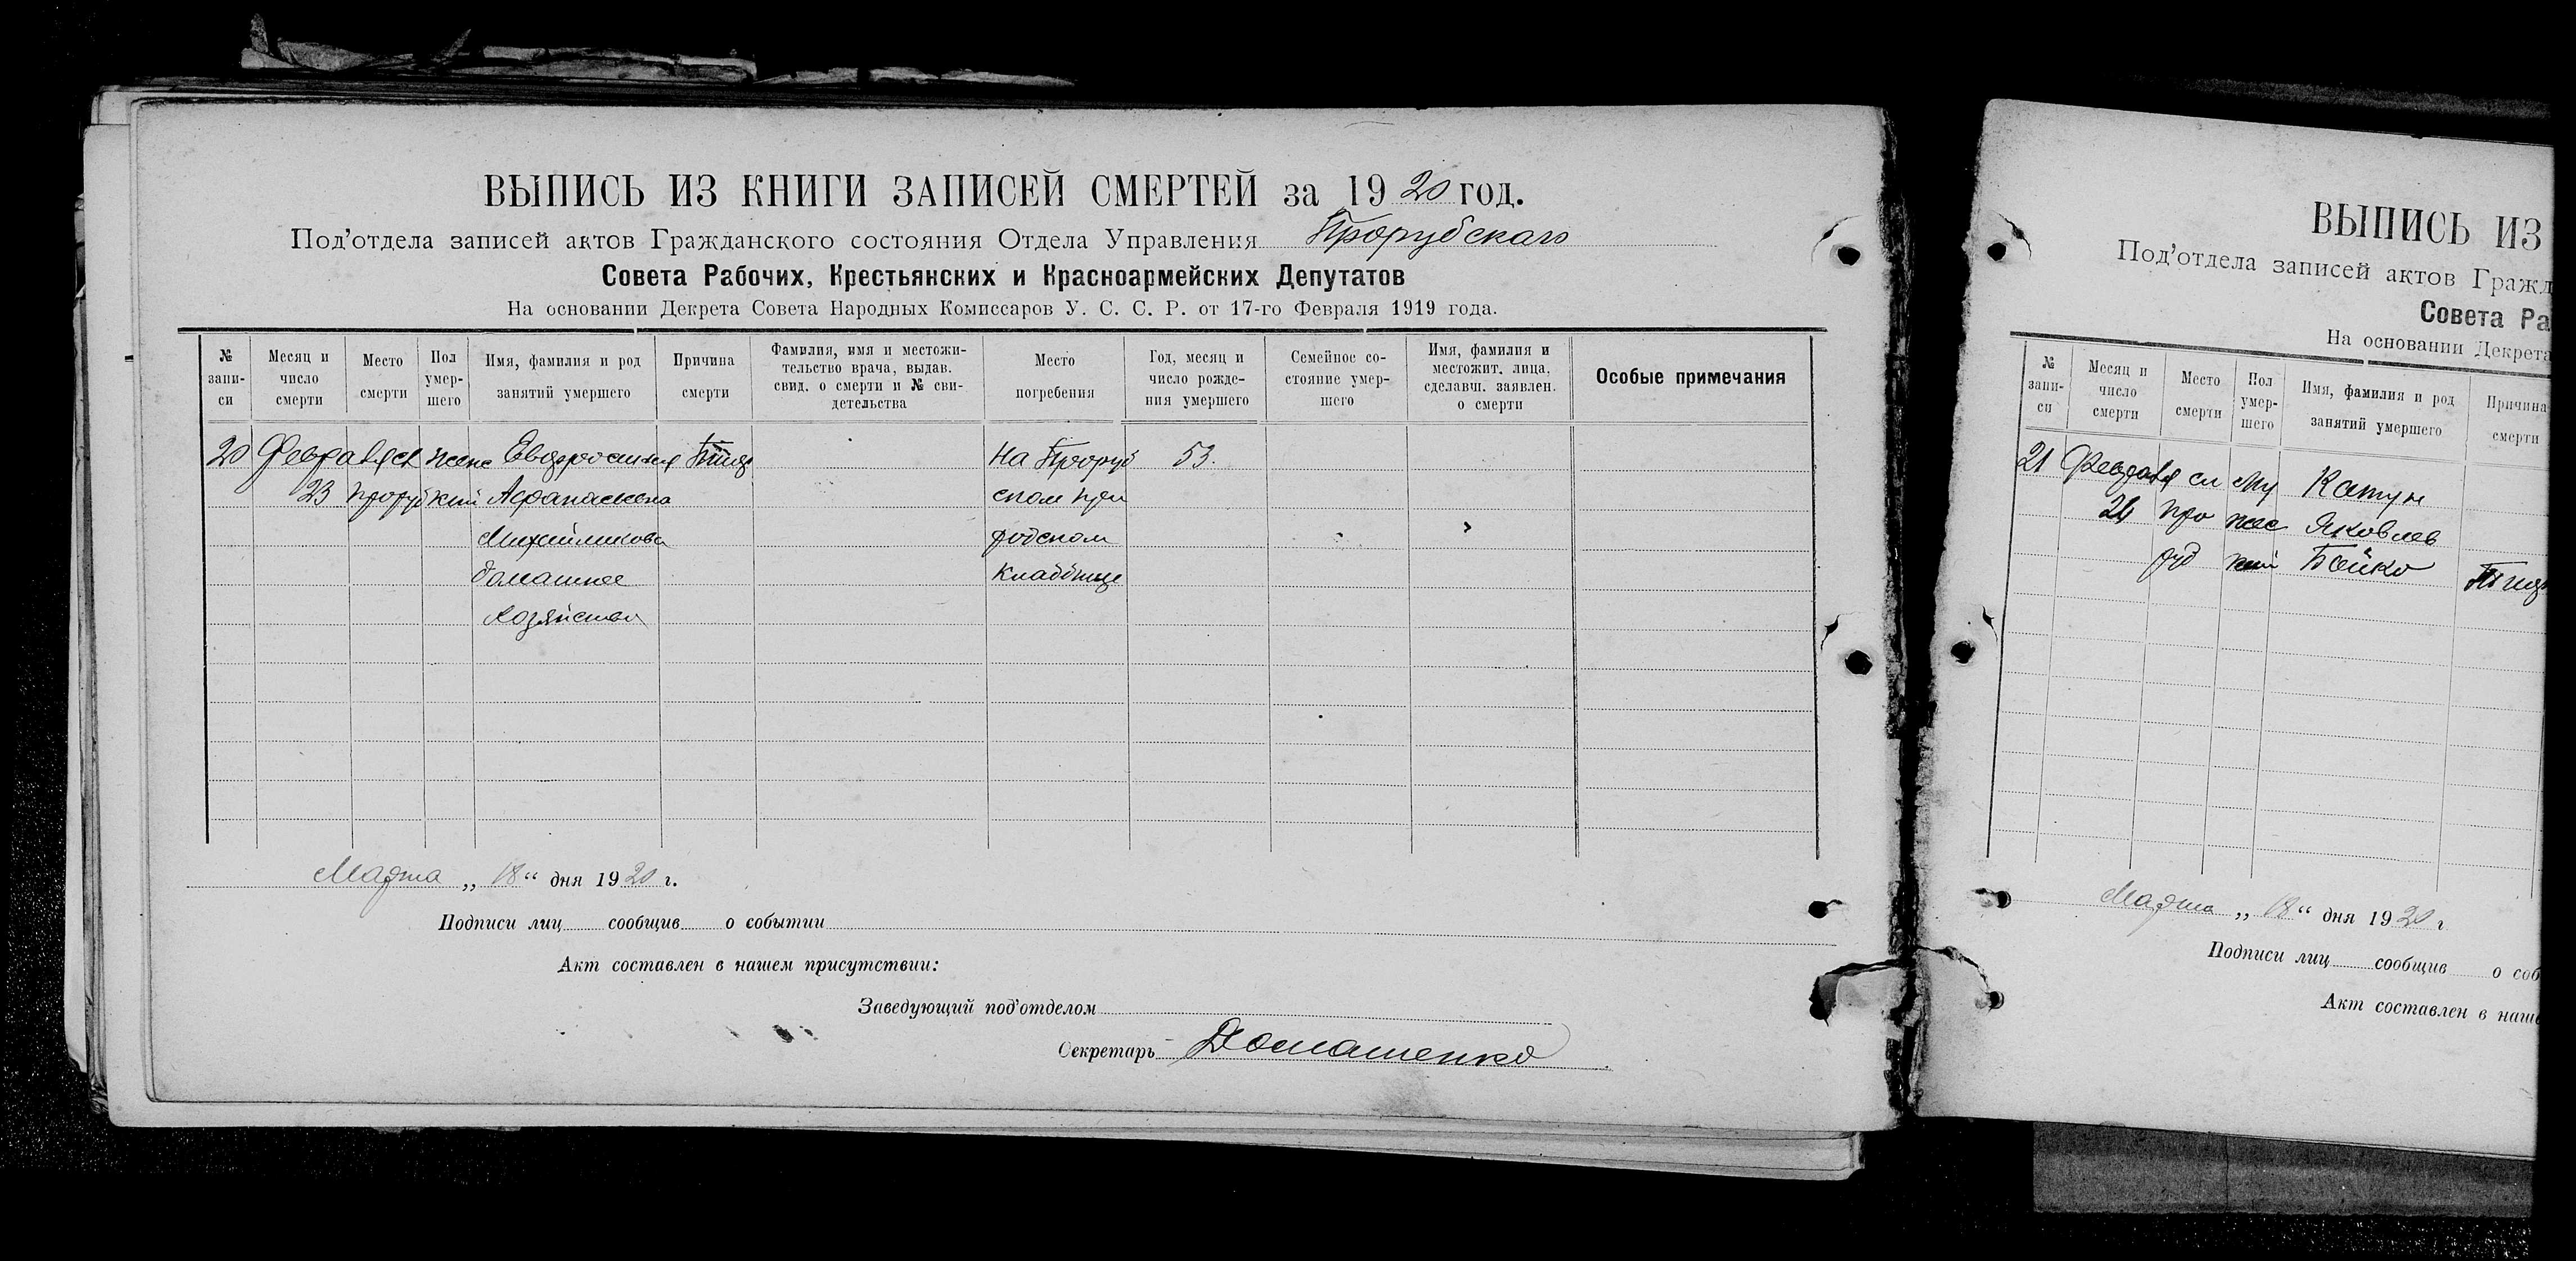 ВЫПИСЬ ИЗ КНИГИ ЗАПИСЕЙ СМЕРТЕЙ за 1920 год.
Под'отдела записей актов Гражданского состояния Отдела Управления Прорубскаго
Совета Рабочих, Крестьянских и Красноармейских Депутатов
На основании Декрета Совета Народных Комиссаров У. С. С. Р. от 17-го Февраля 1919 года.
№ запи-си
Месяц и число смерти
Место смерти
Пол умер-шего
Имя, фамилия и род занятий умершего
Причина смерти
Фамилия, имя и местожи-тельство врача, выдав. свид. о смерти и № сви-детельства
Место погребения
Год, месяц и число рожде-ния умершего
Семейное со-стояние умер-шего
Имя, фамилия и местожит. лица, сделавш. заявлен. о смерти
Особые примечания
20 Февраля сл женс Евдросиния Тиф На Проруб 53.
23 Проруб кий Афанасиевна ском при
Михайликова
домашнее кладбище
хозяйство
Марта „18“ дня 1920 г.
Подписи лиц сообщив о событии
Акт составлен в нашем присутствии:
Заведующий под'отделом
Секретарь Домашенко
ВЫПИСЬ ИЗ
Под'отдела записей актов Гражд
Совета Ра
На основании Декрета
№ запи-си
Месяц и число смерти
Место смерти
Пол умер-шего
Имя, фамилия и род занятий умершего
Причина смерти
21 Февраля сл Му Катун
24 Про жес Яковлев
руб кий Бойко
Марта „18“ дня 1920 г
Подписи лиц сообщив о соб
Акт составлен в наше